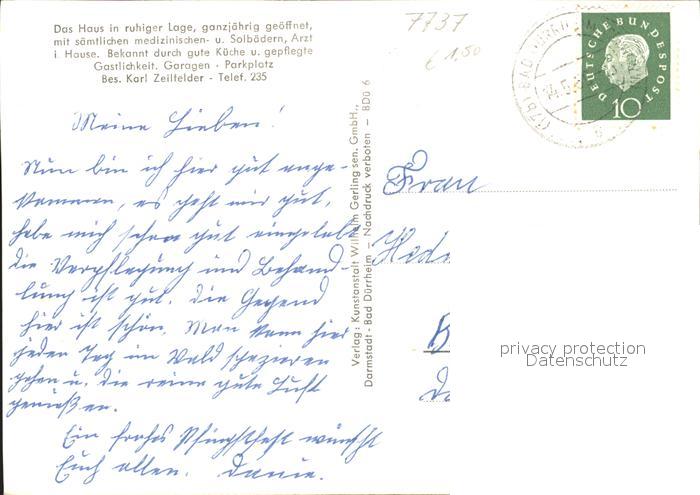 Das Haus in ruhiger Lage, ganzjährig geöffnet,
mit sämtlichen medizinischen- u. Solbädern, Arzt
i. Hause. Bekannt durch gute Küche u. gepflegte
Gastlichkeit. Garagen - Parkplatz
Bes. Karl Zeilfelder - Telef. 235
7737
€ 1,50
DEUTSCHE BUNDESPOST
10
(17b) BAD DÜRRHEIM
Meine Lieben!
Nun bin ich hier gut ange-
kommen, es geht mir gut,
habe mich schon gut eingelebt
die Verpflegung und Behand-
lung ist gut. Die Gegend
hier ist schön. Man kann hier
jeden Tag im Wald spazieren
gehen u. die reine gute Luft
genießen.
Ein frohes Pfingstfest wünscht
Euch allen.
Verlag: Kunstanstalt Wilhelm Gerling sen. GmbH.,
Darmstadt - Bad Dürrheim - Nachdruck verboten - BDü 6
Frau
privacy protection
Datenschutz